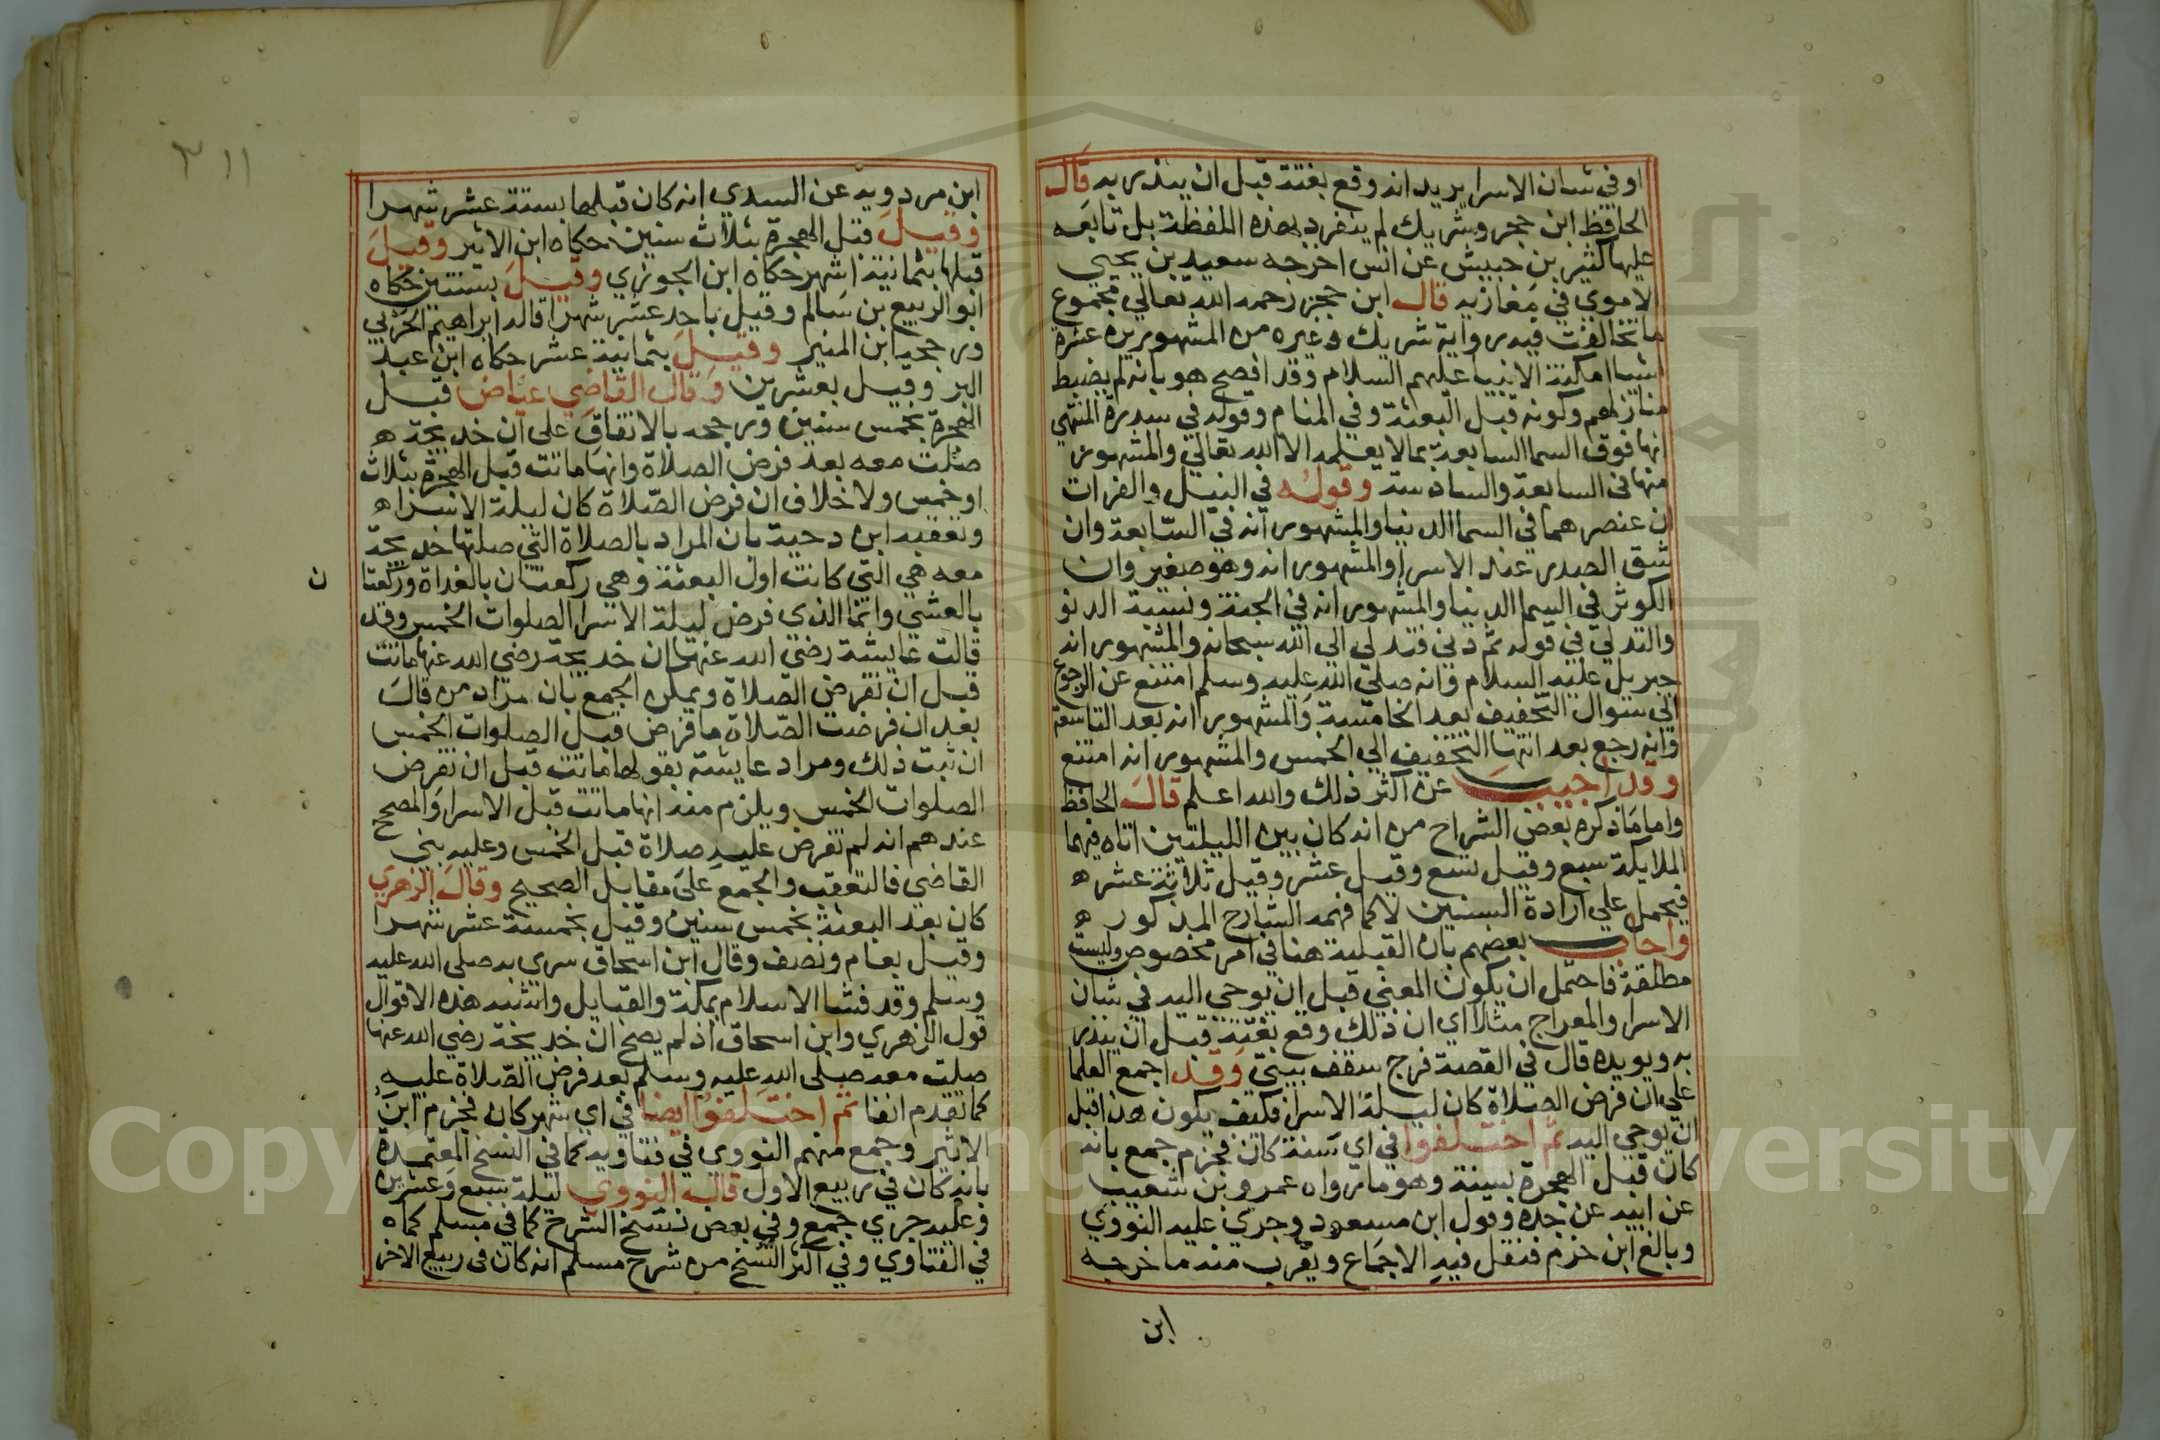 او في شان الاسرا يريد انه وقع بغتة قبل ان ينذر به قال
الحافظ ابن حجر وشريك لم ينفرد بهذه اللفظة بل تابعه
عليها كثير بن حبيش عن انس اخرجه سعيد بن يحيي
الاموي في مغازيه قال ابن حجر رحمه الله تعالي مجموع
ما تخالفت فيه رواية شريك وغيره من المشهورين عشرة
اشيا امكنة الانبيا عليهم السلام وقد افصح هو بانه لم يضبط
منازلهم وكونه قبل البعثة وفي المنام وقوله في سدرة المنتهي
انها فوق السما السابعة بما لا يعلمه الا الله تعالي والمشهور
منها في السابعة والسادسة وقوله في النيل والفرات
ان عنصرهما في السما الدنيا والمشهور انه في السابعة وان
شق الصدر عند الاسرا والمشهور انه وهو صغير وان
الكوثر في السما الدنيا والمشهور انه في الجنة ونسبة الدنو
والتدلي في قوله ثم دني فتدلي الي الله سبحانه والمشهور انه
جبريل عليه السلام وانه صلي الله عليه وسلم امتنع عن الرجوع
الي سوال التخفيف بعد الخامسة والمشهور انه بعد التاسعة
وانه رجع بعد انتها التخفيف الي الخمس والمشهور انه امتنع
وقد اجيب عن اكثر ذلك والله اعلم قال الحافظ
واما ما ذكره بعض الشراح من انه كان بين الليلتين اتاه فيهما
الملايكة سبع وقيل تسع وقيل عشر وقيل ثلاثة عشر ه
فيحمل علي ارادة السنين لا كما فهمه الشارح المذكور ه
واجاب بعضهم بان القبلية هنا في امر مخصوص وليست
مطلقة فاحتمل ان يكون المعني قبل ان يوحي اليه في شان
الاسرا والمعراج مثلا اي ان ذلك وقع بغتة قبل ان ينذر
به ويويده قال في القصة فرج سقف بيتي وقد اجمع العلما
علي ان فرض الصلاة كان ليلة الاسرا فكيف يكون هذا قبل
ان يوحي اليه ثم اختلفوا في اي سنة كان فجزم جمع بانه
كان قبل الهجرة بسنة وهو ما رواه عمرو بن شعيب
عن ابيه عن جده وقول ابن مسعود وجري عليه النووي
وبالغ ابن حزم فنقل فيه الاجماع ويقرب منه ما خرجه
ابن
٣١١
ابن مردويه عن السدي انه كان قبلها بستة عشر شهرا
وقيل قبل الهجرة بثلاث سنين حكاه ابن الاثير وقيل
قبلها بثمانية اشهر حكاه ابن الجوزي وقيل بسنتين حكاه
ابو الربيع بن سالم وقيل باحد عشر شهرا قاله ابراهيم الحربي
ورجحه ابن المنير وقيل بثمانية عشر حكاه ابن عبد
البر وقيل بعشرين وقال القاضي عياض قبل
الهجرة بخمس سنين ورجحه بالاتفاق على ان خديجة ه
صلت معه بعد فرض الصلاة وانها ماتت قبل الهجرة بثلاث
او خمس ولا خلاف ان فرض الصلاة كان ليلة الاسرا ه
وتعقبه ابن دحية بان المراد بالصلاة التي صلتها خديجة
معه هي التي كانت اول البعثة وهي ركعتان بالغداة وركعتا
ن
بالعشي وانما الذي فرض ليلة الاسرا الصلوات الخمس وقد
قالت عايشة رضي الله عنها ان خديجة رضي الله عنها ماتت
قبل ان تفرض الصلاة ويمكن الجمع بان مراد من قال
بعد ان فرضت الصلاة ما فرض قبل الصلوات الخمس
ان ثبت ذلك ومراد عايشة بقولها ماتت قبل ان تفرض
الصلوات الخمس ويلزم منه انها ماتت قبل الاسرا والمصحح
عندهم انه لم تفرض عليه صلاة قبل الخمس وعليه بني
القاضي فالتعقب والجمع علي مقابل الصحيح وقال الزهري
كان بعد البعثة بخمس سنين وقيل بخمسة عشر شهرا
وقيل بعام ونصف وقال ابن اسحاق سري به صلى الله عليه
وسلم وقد فشا الاسلام بمكة والقبايل واشبه هذه الاقوال
قول الزهري وابن اسحاق اذ لم يصح ان خديجة رضي الله عنها
صلت معه صلى الله عليه وسلم بعد فرض الصلاة عليه
كما تقدم انفا ثم اختلفوا ايضا في اي شهر كان فجزم ابن
الاثير وجمع منهم النووي في فتاويه كما في النسخ المعتمدة
بانه كان في ربيع الاول قاله النووي ليلة سبع وعشرين
وعليه جري جمع وفي بعض نسخ الشرح كما في مسلم كماه
في الفتاوي وفي اكثر النسخ من شرح مسلم انه كان في ربيع الاخر